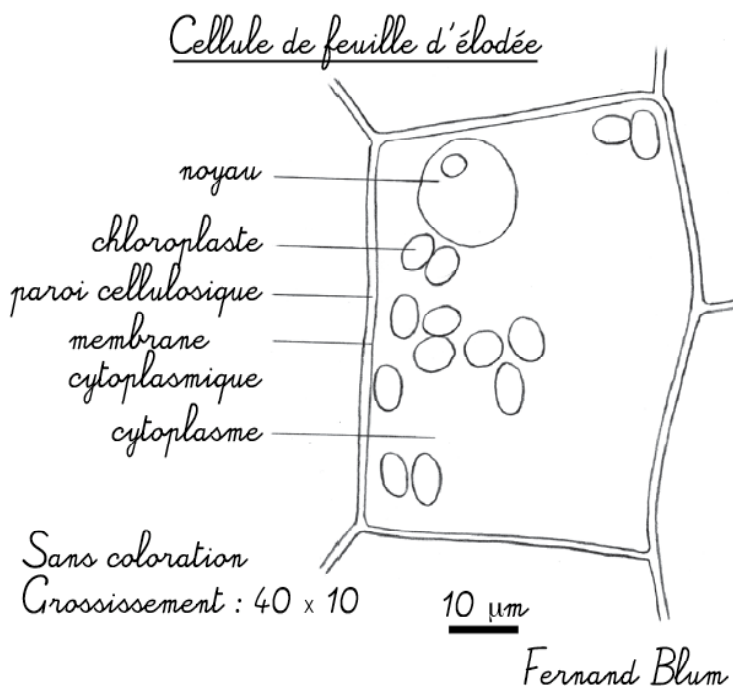 Cellule de feuille d'élodée
noyau
chloroplaste
paroi cellulosique
membrane
cytoplasmique
cytoplasme
Sans coloration
Grossissement : 40 x 10
10 µm
Fernand Blum